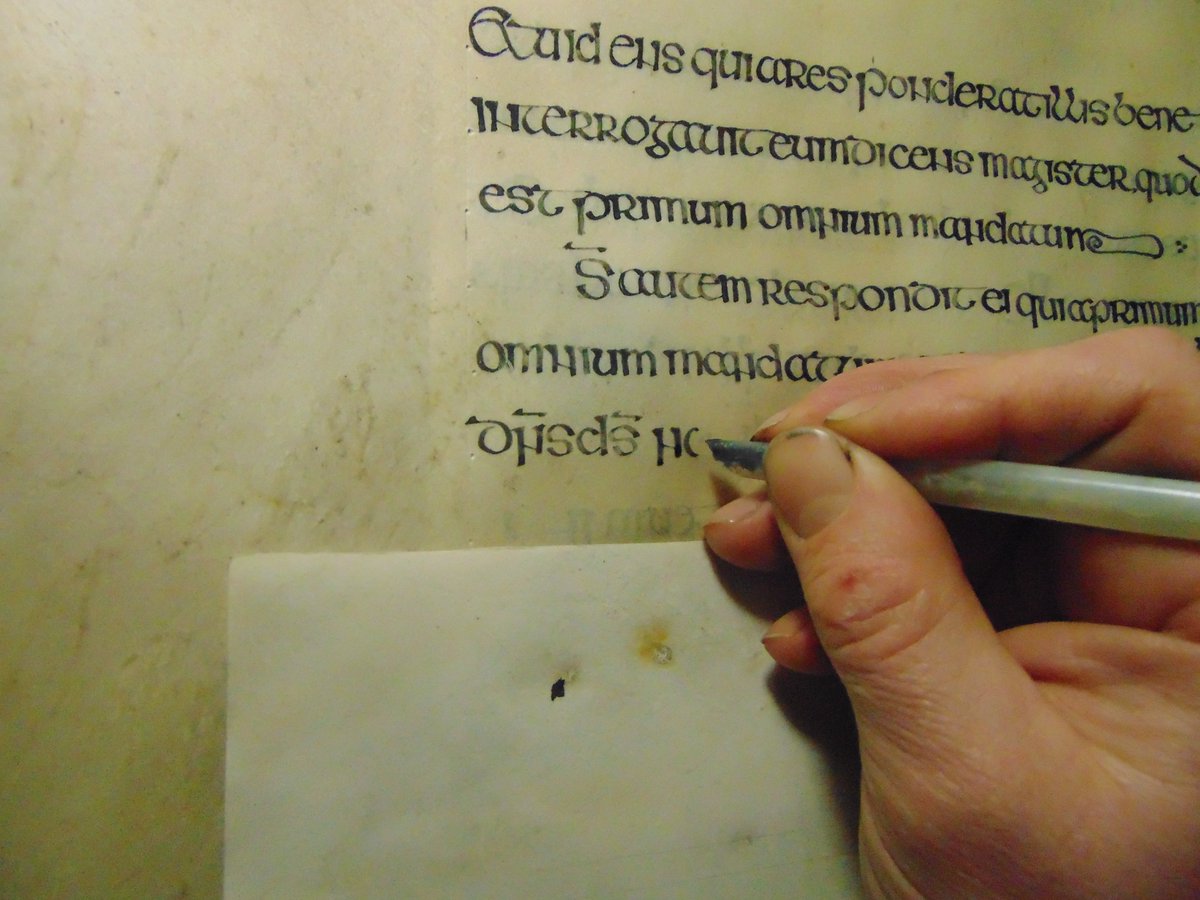 Etuidens quiaresponderatillis bene
interrogauit eum dicens magister.quod
est primum omnium mandatum :
S̄ autem respondit ei quiaprimum
omnium mandatum
dn̄sds̄ no